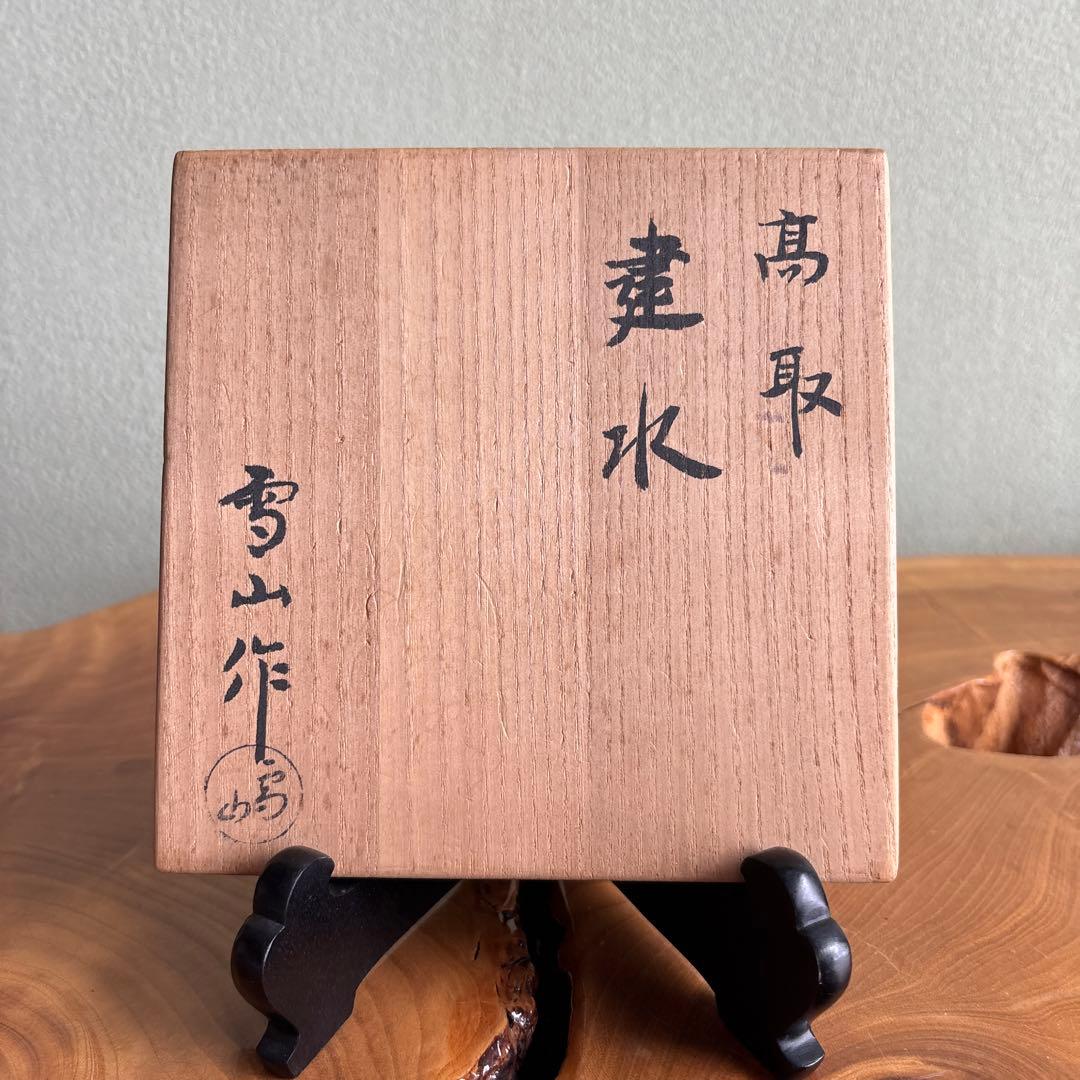 髙取
建水
雪山作
雪山